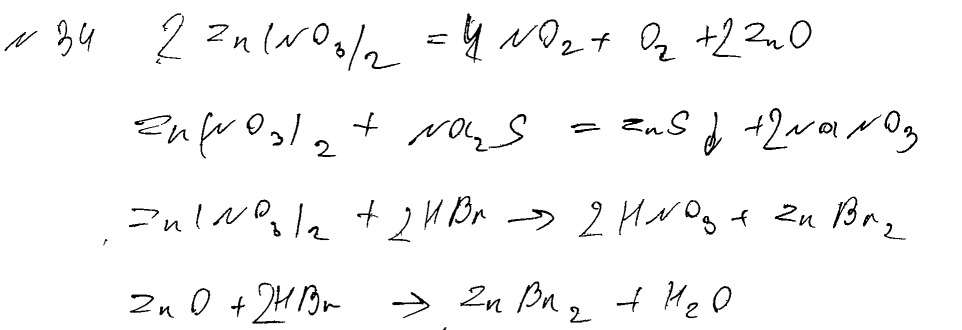 № 34 2 Zn(NO₃)₂ = 4 NO₂ + O₂ + 2ZnO
Zn(NO₃)₂ + Na₂S = ZnS↓ + 2NaNO₃
Zn(NO₃)₂ + 2HBr → 2HNO₃ + ZnBr₂
ZnO + 2HBr → ZnBr₂ + H₂O